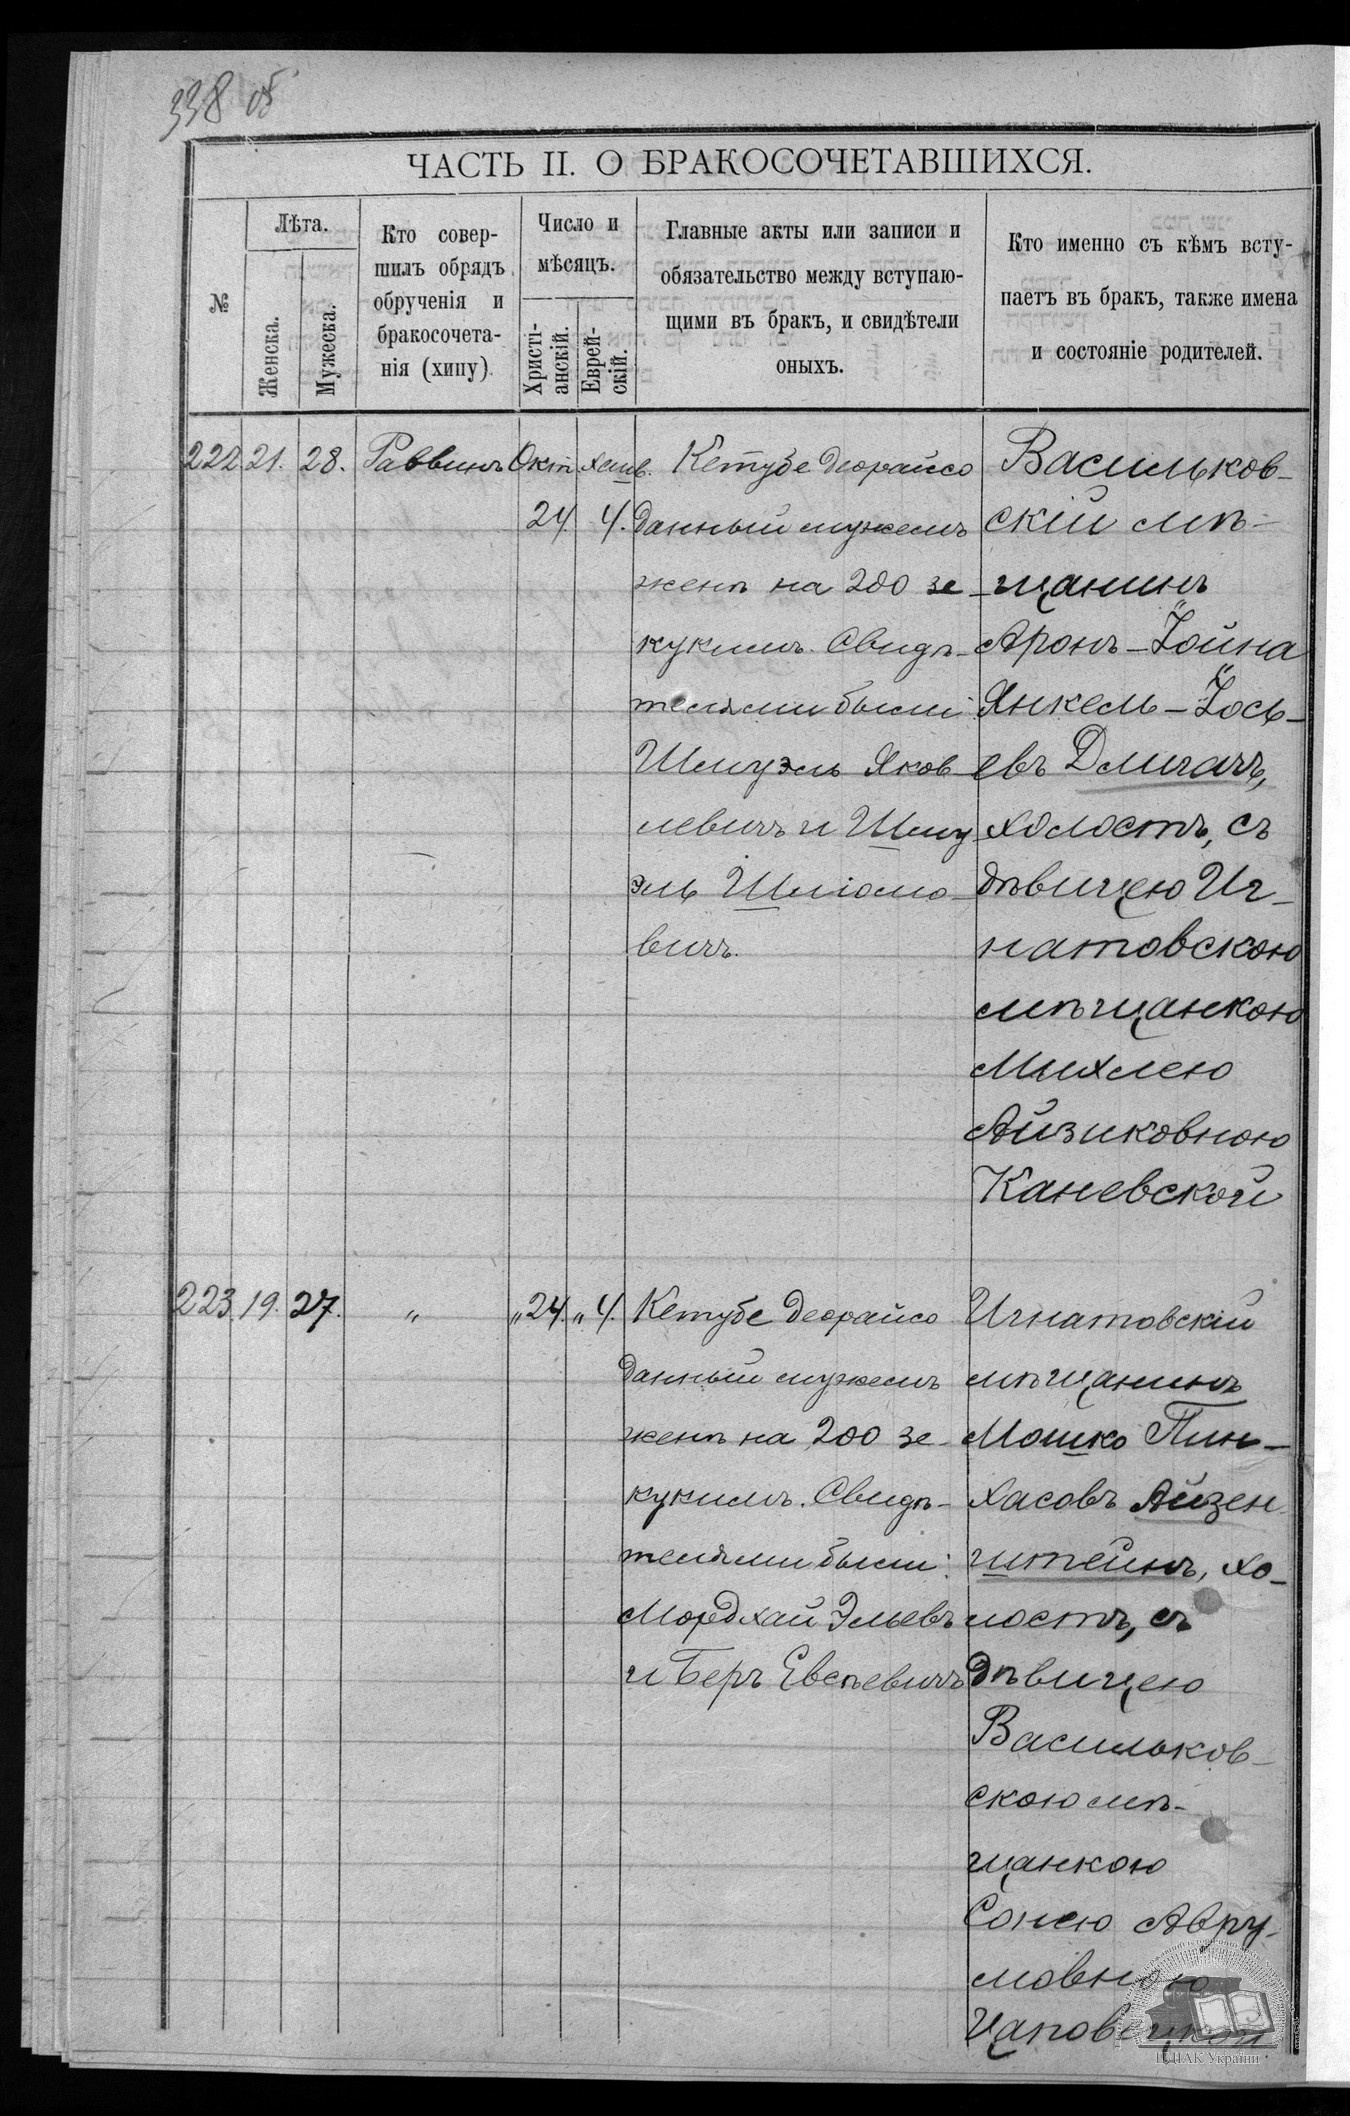 338 об
ЧАСТЬ II. О БРАКОСОЧЕТАВШИХСЯ.
№
Лѣта.
Женска.
Мужеска.
Кто совер-
шилъ обрядъ
обрученія и
бракосочета-
нія (хипу)
Число и
мѣсяцъ.
Христі-
анскій.
Еврей-
скій.
Главные акты или записи и
обязательство между вступаю-
щими въ бракъ, и свидѣтели
оныхъ.
Кто именно съ кѣмъ всту-
паетъ въ бракъ, также имена
и состояніе родителей.
222. 21. 28. Раввинъ Окт. хешв.
24 4.
Кетубе деорайсо
данный мужемъ
женѣ на 200 зе-
кукимъ. Свидѣ-
телями были:
Шмуэль Яков-
левичъ и Шму
эль Шліомо-
вичъ.
Васильков-
скій мѣ-
щанинъ
Аронъ-Іойна
Янкель-Іось-
евъ Длигачъ,
холостъ, съ
дѣвицею Иг-
натовскою
мѣщанкою
Михлею
Айзиковною
Каневской
223. 19. 27. " " 24. " 4.
Кетубе деорайсо
данный мужемъ
женѣ на 200 зе-
кукимъ. Свидѣ-
телями были:
Мордхай Эльевъ
и Беръ Евсѣевичъ
Игнатовскій
мѣщанинъ
Мошко Пин-
хасовъ Айзен-
штейнъ, хо-
лостъ, съ
дѣвицею
Васильков-
скою мѣ-
щанкою
Сонею Авру-
мовною
Цаповецкой
ЦДІАК України